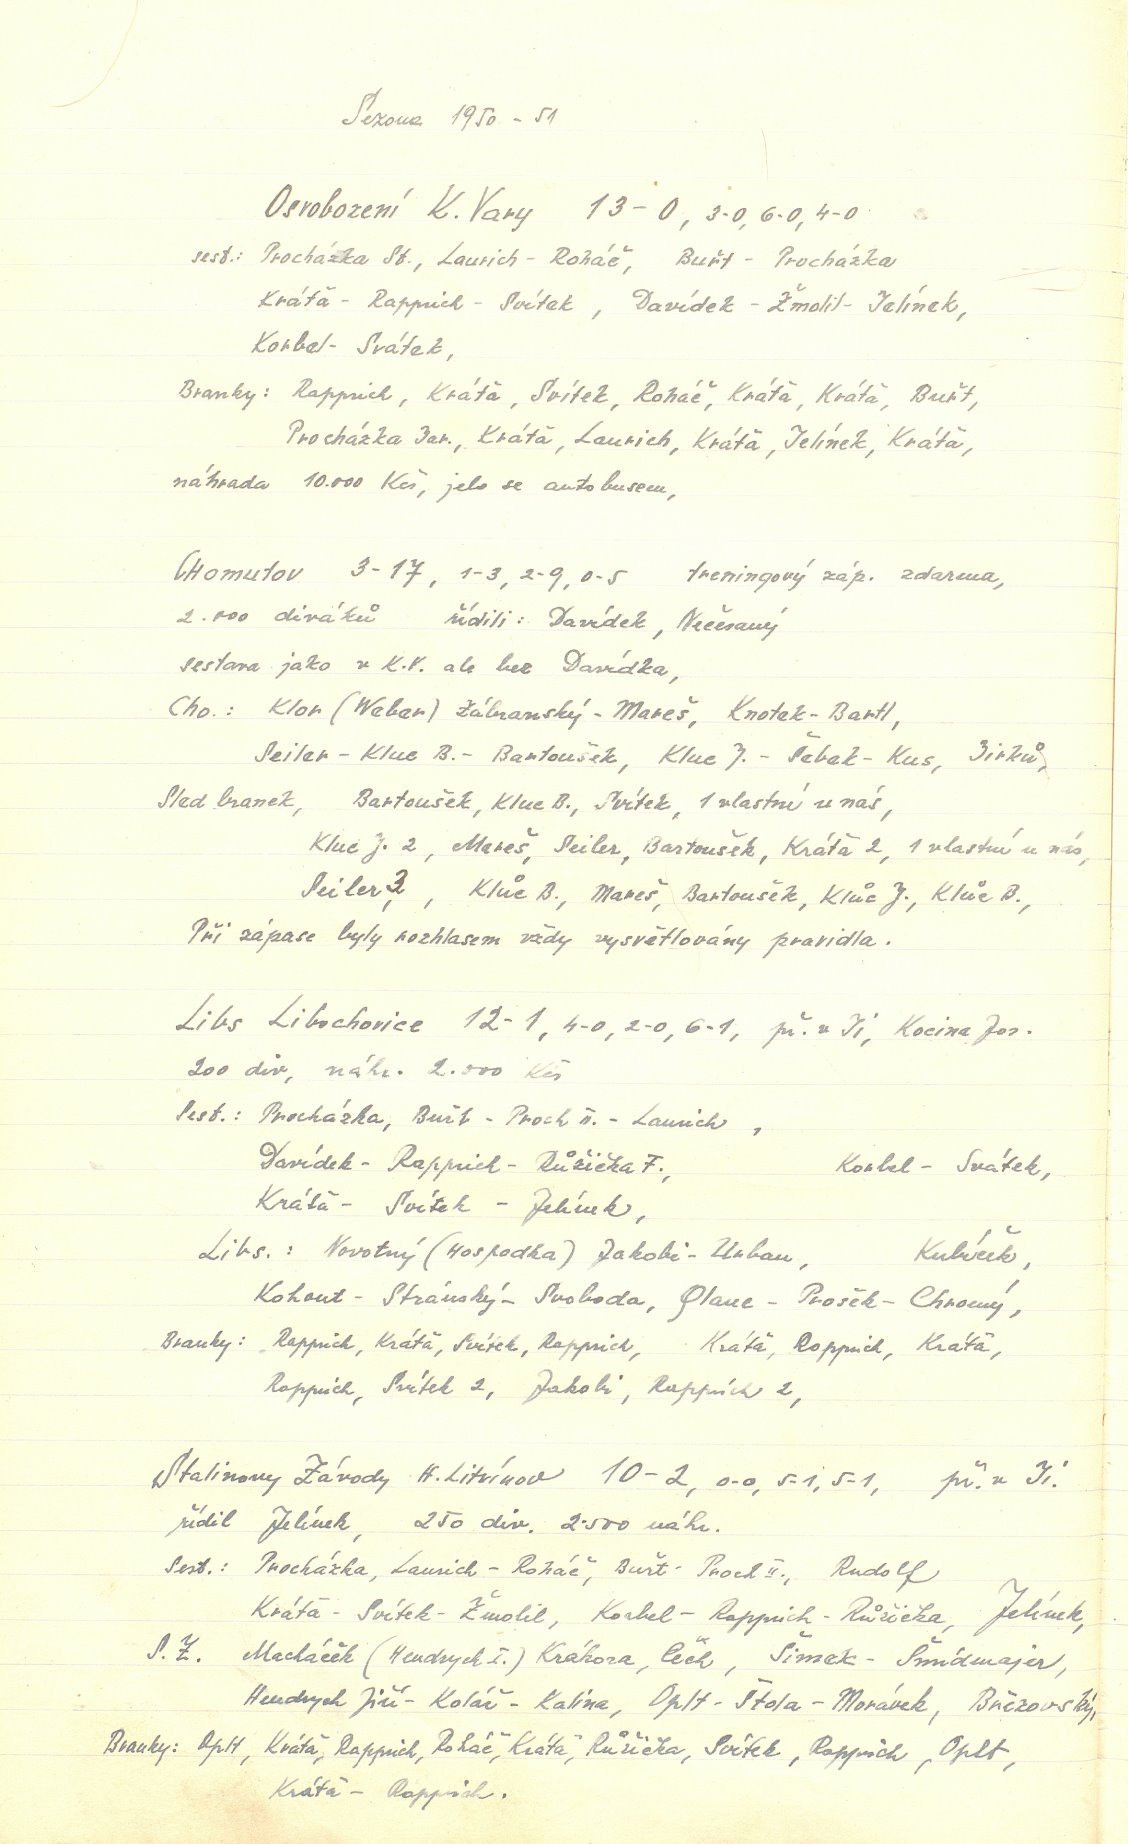 Sezona 1950 - 51
Osvobození K. Vary 13 - 0, 3-0, 6-0, 4-0
sest.: Procházka St., Laurich - Roháč, Buřt - Procházka
Krátă - Rapprich - Svítek, Davídek - Žmolil - Jelínek,
Korbel - Svátek,
Branky: Rapprich, Krátă, Svítek, Roháč, Krátă, Krátă, Buřt,
Procházka Jar., Krátă, Laurich, Krátă, Jelínek, Krátă,
náhrada 10.000 Kčs, jelo se autobusem,
CHomutov 3 - 17, 1-3, 2-9, 0-5 treningový záp. zdarma,
2.000 diváků řídili: Davídek, Nečesaný
sestava jako v K.V. ale bez Davídka,
Cho.: Klor (Weber) Zábranský - Mareš, Knotek - Bartl,
Seiler - Kluc B. - Bartoušek, Kluc J. - Šebek - Kus, Jirků,
Sled branek, Bartoušek, Kluc B., Svítek, 1 vlastní u nás,
Kluc J. 2, Mareš, Seiler, Bartoušek, Krátă 2, 1 vlastní u nás,
Seiler 3, Klůc B., Mareš, Bartoušek, Klůc J., Klůc B.,
Při zápase byly rozhlasem vždy vysvětlovány pravidla.
Libs Libochovice 12 - 1, 4-0, 2-0, 6-1, př. v Ji, Kocina Jos.
200 div, náhr. 2.000 Kčs
Sest.: Procházka, Buřt - Proch II. - Laurich,
Davídek - Rapprich - Růžička F., Korbel - Svátek,
Krátă - Svítek - Jelínek,
Libs.: Novotný (Hospodka) Jakobi - Urban, Kubíček,
Kohout - Stránský - Svoboda, - Prošek - Chromý,
Branky: Rapprich, Krátă, Svítek, Rapprich, Krátă, Rapprich, Krátă,
Rapprich, Svítek 2, Jakobi, Rapprich 2,
Stalinovy Závody H. Litvínov 10 - 2, 0-0, 5-1, 5-1, př. v Ji.
řídil Jelínek, 250 div. 2.500 náhr.
Sest.: Procházka, Laurich - Roháč, Buřt - Proch II., Rudolf
Krátă - Svítek - Žmolil, Korbel - Rapprich - Růžička, Jelínek,
S. Z. Macháček (Hendrych I.) Krákora, Čech, Šimek - Šmídmajer,
Hendrych Jiří - Kolář - Kalina, Oplt - Štola - Morávek, Březovský,
Branky: Oplt, Krátă, Rapprich, Roháč, Krátă, Růžička, Svítek, Rapprich, Oplt,
Krátă - Rapprich.